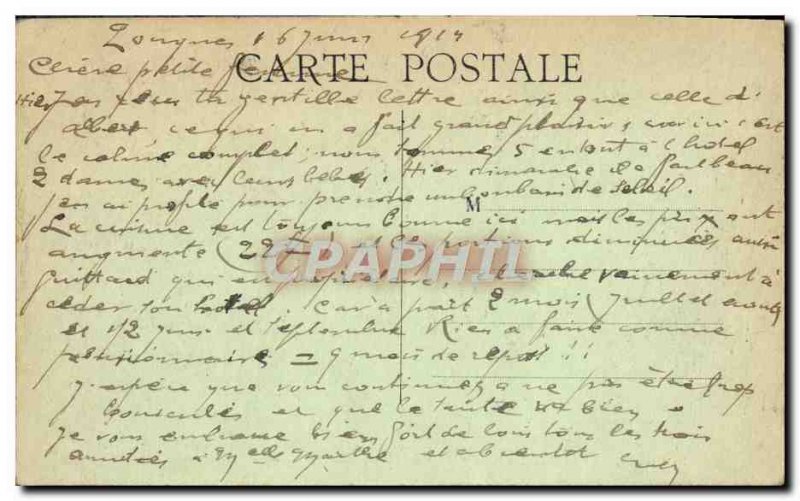 16 juin
CARTE POSTALE
Chère petite
Hier J'ai reçu ta gentille lettre ainsi que celle d'
ce qui m'a fait grand plaisir, ici c'est
le calme complet, nous sommes 5 enfant à l'hotel
2 dames avec leurs bébés. Hier dimanche il a fait beau
j'en ai profité pour prendre un bain de soleil.
M
La cuisine est toujours bonne ici mais les prix ont
augmenté et les portions diminuées aussi
CPAPHIL
qui est propriétaire, vainement à
céder son hotel. Car à part 2 mois juillet aout
et 1/2 juin et septembre Rien à faire comme
pensionnaire = 9 mois de repos !!
J'espère que vous continuez à ne pas être trop
bousculés et que la santé va bien.
Je vous embrasse bien fort de tous les trois
amitiés à Melle Marthe et a bientot